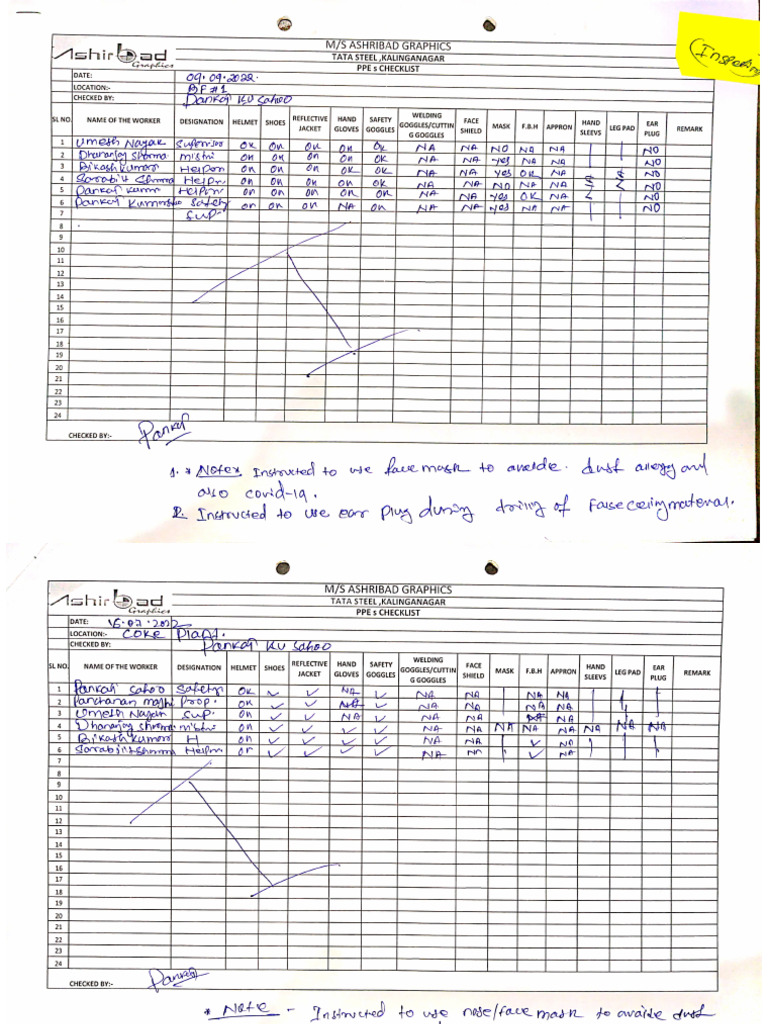 (Inspection
M/S ASHRIBAD GRAPHICS
Ashirbad
Graphics
TATA STEEL ,KALINGANAGAR
PPE s CHECKLIST
DATE: 09.09.2022.
LOCATION:- BF #1
CHECKED BY: Pankaj KU Sahoo
SL NO. NAME OF THE WORKER DESIGNATION HELMET SHOES REFLECTIVE JACKET HAND GLOVES SAFETY GOGGLES WELDING GOGGLES/CUTTIN G GOGGLES FACE SHIELD MASK F.B.H APPRON HAND SLEEVS LEG PAD EAR PLUG REMARK
1 Umesh Nayak OK ON ON ON OK NA NA NO NA NA NO
2 Dhananjoy Sharma mistri ON ON ON OK OK NA NA Yes NA NA NO
3 Bikash kumar Helper ON ON ON OK OK NA NA Yes OK NA NO
4 Sarabjit Sharma Helper ON ON ON ON OK NA NA NO NA NA NA NA NO
5 Pankaj kumar Helper ON ON ON ON OK NA NA Yes OK NA NO
6 Pankaj Kumar Safety ON ON ON NA ON NA NA Yes NA NA NO
7 Sup-
8
9
10
11
12
13
14
15
16
17
18
19
20
21
22
23
24
CHECKED BY:- Pankaj
1. * Notes Instructed to use face mask to avaide. dust allergy and
also covid-19.
2. Instructed to use ear plug during driling of Falseceiling material.
M/S ASHRIBAD GRAPHICS
Ashirbad
Graphics
TATA STEEL ,KALINGANAGAR
PPE s CHECKLIST
DATE: .2022
LOCATION:- Coke Plant.
CHECKED BY: Pankaj KU Sahoo
SL NO. NAME OF THE WORKER DESIGNATION HELMET SHOES REFLECTIVE JACKET HAND GLOVES SAFETY GOGGLES WELDING GOGGLES/CUTTIN G GOGGLES FACE SHIELD MASK F.B.H APPRON HAND SLEEVS LEG PAD EAR PLUG REMARK
1 Pankaj Sahoo Safety OK ✓ ✓ NA ✓ NA NA NA NA
2 Prop. OK ✓ ✓ NA ✓ NA NA NA NA
3 Umesh Nayak Sup. ON ✓ ✓ NA ✓ NA NA NA NA
4 Dhananjoy Sharma mistri ON ✓ ✓ ✓ ✓ NA NA NA NA NA NA NA NA
5 Bikash kumar H ON ✓ ✓ ✓ ✓ NA NA ✓ NA
6 Sarabjit Sharma Helper ON ✓ ✓ ✓ ✓ NA NA ✓ NA
7
8
9
10
11
12
13
14
15
16
17
18
19
20
21
22
23
24
CHECKED BY:- Pankaj
* Note - Instructed to use nose/face mask to avaide dust